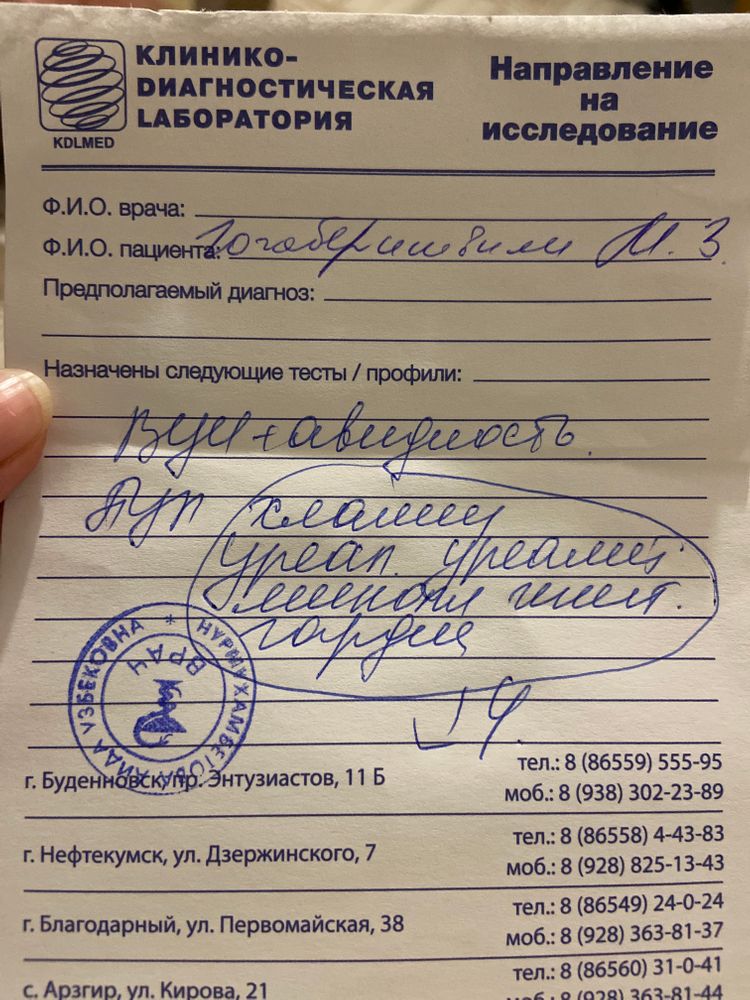 КЛИНИКО-
DИАГНОСТИЧЕСКАЯ
LАБОРАТОРИЯ
KDLMED
Направление
на
исследование
Ф.И.О. врача:
Ф.И.О. пациента: Гогоберишвили М. З.
Предполагаемый диагноз:
Назначены следующие тесты / профили:
ВУИ + авидность
хлами
уреап. уреалит
микопл гинит.
гардн
НУРМУХАМБЕТОВА АИДА УЗБЕКОВНА *
ВРАЧ
г. Буденновск, пр. Энтузиастов, 11 Б
тел.: 8 (86559) 555-95
моб.: 8 (938) 302-23-89
г. Нефтекумск, ул. Дзержинского, 7
тел.: 8 (86558) 4-43-83
моб.: 8 (928) 825-13-43
г. Благодарный, ул. Первомайская, 38
тел.: 8 (86549) 24-0-24
моб.: 8 (928) 363-81-37
с. Арзгир, ул. Кирова, 21
тел.: 8 (86560) 31-0-41
моб.: 8 (928) 363-81-44